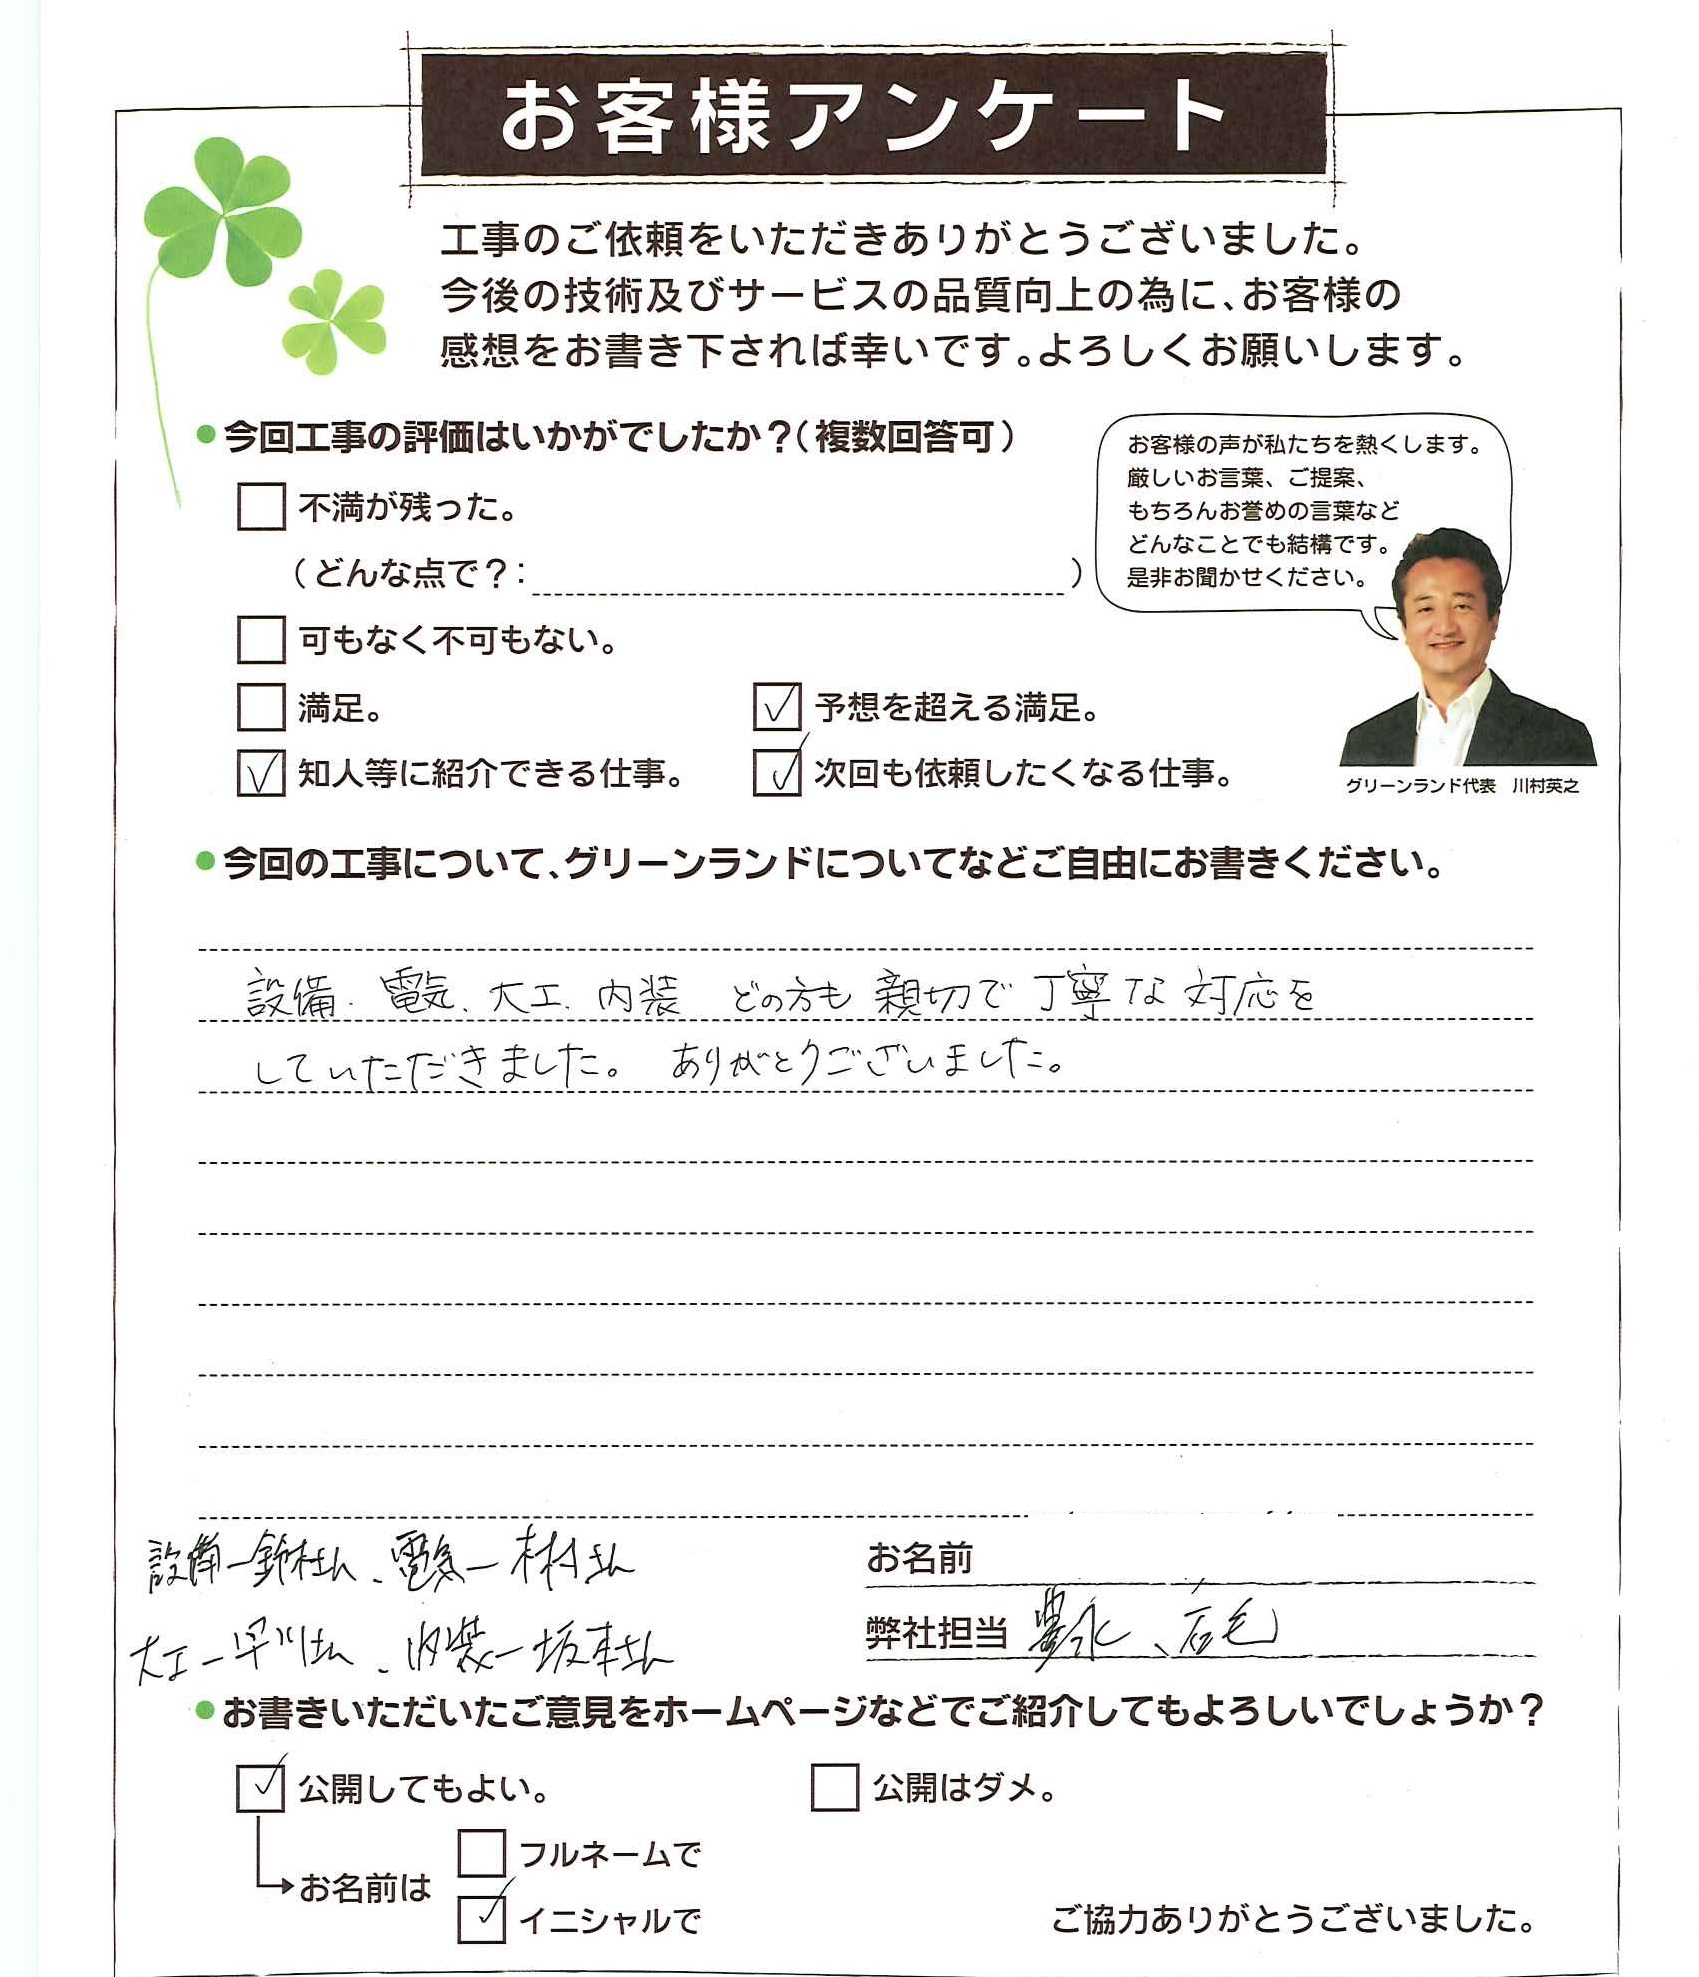 お客様アンケート
工事のご依頼をいただきありがとうございました。
今後の技術及びサービスの品質向上の為に、お客様の
感想をお書き下されば幸いです。よろしくお願いします。
●今回工事の評価はいかがでしたか？(複数回答可)
不満が残った。
(どんな点で？: )
可もなく不可もない。
満足。
予想を超える満足。
知人等に紹介できる仕事。
次回も依頼したくなる仕事。
お客様の声が私たちを熱くします。
厳しいお言葉、ご提案、
もちろんお誉めの言葉など
どんなことでも結構です。
是非お聞かせください。
グリーンランド代表 川村英之
●今回の工事について、グリーンランドについてなどご自由にお書きください。
設備. 電気. 大工. 内装 どの方も 親切で 丁寧な 対応を
していただきました。 ありがとうございました。
設備ー鈴木さん、電気ー さん
大工ー早川さん、内装ー坂本さん
お名前
弊社担当 豊永、石毛
●お書きいただいたご意見をホームページなどでご紹介してもよろしいでしょうか？
公開してもよい。
公開はダメ。
お名前は
フルネームで
イニシャルで
ご協力ありがとうございました。